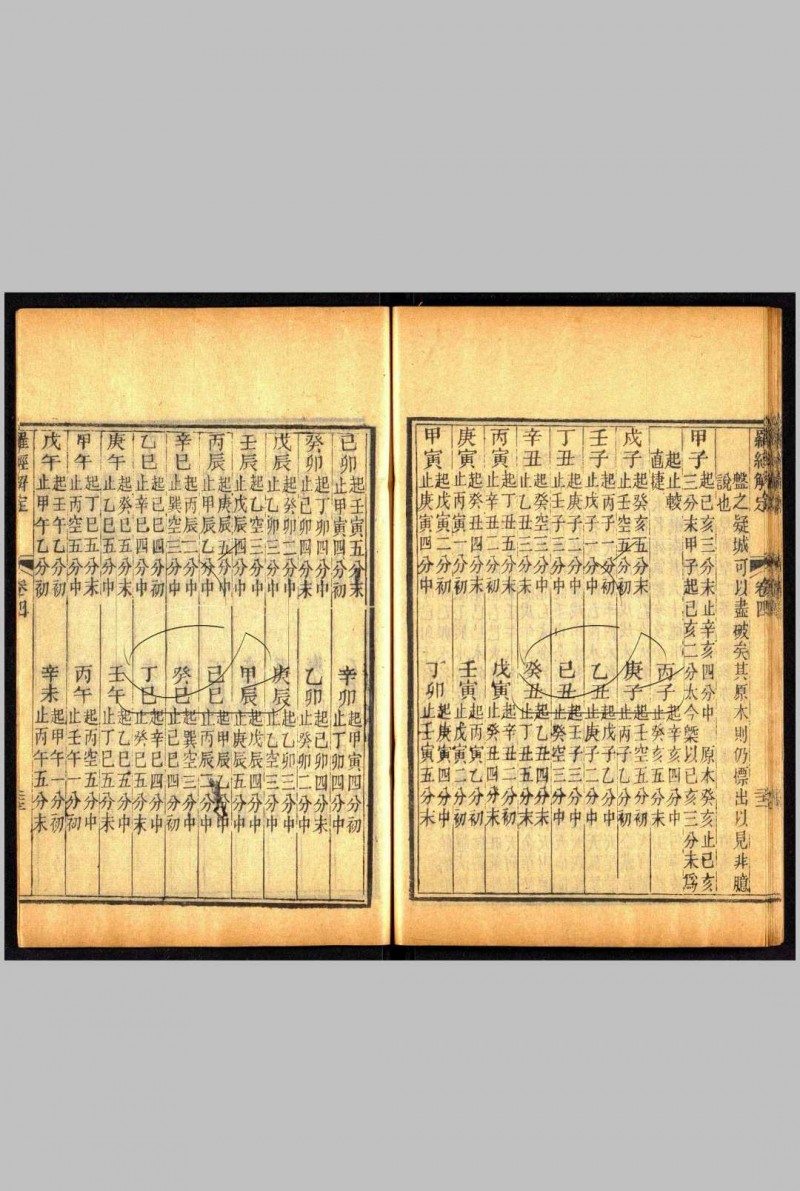 羅經解定
卷四
三十三
盤之疑城可以盡破矣其原本則仍標出以見非臆
說也
甲子 起己亥三分末止辛亥四分中 原本癸亥止己亥
三分末甲子起己亥二分太今槩以己亥三分末爲
起止較
直捷
丙子 起辛亥四分中
止癸亥五分末
戊子 起癸亥五分末
止壬空五分初
庚子 起壬空五分初
止丙子乙分初
壬子 起丙子一分初
止戊子一分中
乙丑 起戊子乙分中
止庚子二分中
丁丑 起庚子二分中
止壬子三分中
己丑 起壬子三分中
止癸空三分中
辛丑 起癸空三分中
止乙丑四分末
癸丑 起乙丑四分末
止丁丑五分末
丙寅 起丁丑五分末
止辛丑二分初
戊寅 起辛丑二分初
止癸丑四分中
庚寅 起癸丑四分末
止丙寅一分中
壬寅 起丙寅乙分中
止戊寅二分初
甲寅 起戊寅二分初
止庚寅四分中
丁卯 起庚寅四分中
止壬寅五分末
己卯 起壬寅五分末
止甲寅四分初
辛卯 起甲寅四分初
止丁卯四分中
癸卯 起丁卯四分中
止己卯四分末
乙卯 起己卯四分末
止癸卯二分中
戊辰 起癸卯二分中
止乙卯三分中
庚辰 起乙卯三分中
止乙空三分中
壬辰 起乙空三分中
止戊辰四分中
甲辰 起戊辰四分中
止庚辰五分末
丙辰 起庚辰五分末
止甲辰乙分中
己巳 起甲辰乙分中
止丙辰二分初
辛巳 起丙辰二分初
止巽空三分中
癸巳 起巽空三分中
止己巳四分初
乙巳 起己巳四分初
止辛巳四分中
丁巳 起辛巳四分中
止癸巳五分末
庚午 起癸巳五分末
止乙巳五分中
壬午 起乙巳五分中
止丁巳五分末
甲午 起丁巳五分末
止丙空五分中
丙午 起丙空五分中
止壬午一分初
戊午 起壬午乙分初
止甲午乙分初
辛未 起甲午一分初
止丙午五分末
羅經解定
卷四
三十三